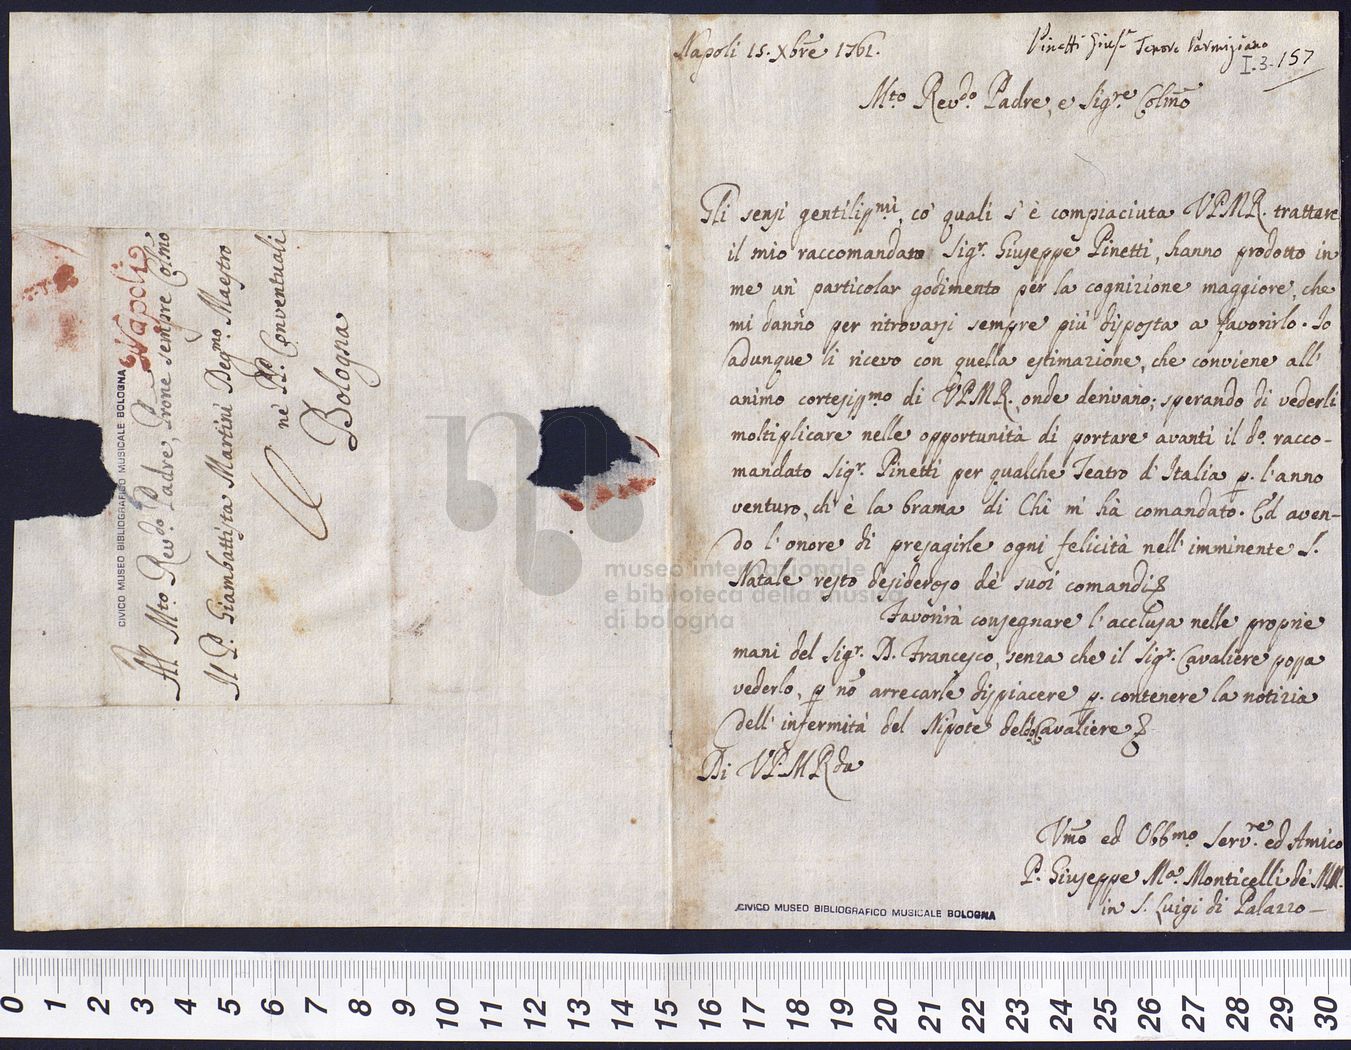 Al Mto. Revdo. Padre, Prone sempre Colmo
Il P. Giambattista Martini Degmo. Maestro
ne' PP. Conventuali
Bologna
Napoli
CIVICO MUSEO BIBLIOGRAFICO MUSICALE BOLOGNA
Napoli 15. Xbre 1761.
Pinetti Giuse. Tenore Parmigiano
I.3.157
Mto. Revdo. Padre, e Sigre. Colmo
Gli sensi gentilissmi, co' quali s' è compiaciuta VPMR. trattare
il mio raccomandato Sigr. Giuseppe Pinetti, hanno prodotto in
me un' particolar godimento per la cognizione maggiore, che
mi danno per ritrovarsi sempre più disposta a favorirlo. Io
adunque li ricevo con quella estimazione, che conviene all'
animo cortesissmo di VPMR., onde derivano; sperando di vederli
moltiplicare nelle opportunità di portare avanti il do. racco-
mandato Sigr. Pinetti per qualche Teatro d' Italia p. l' anno
venturo, ch' è la brama di Chi m' hà comandato. Ed aven-
do l' onore di presagirle ogni felicità nell' imminente S.
Natale resto desideroso de' suoi comandi
Favorirà consegnare l' acclusa nelle proprie
mani del Sigr. D. Francesco, senza che il Sigr. Cavaliere possa
vederlo, p. nō arrecarle dispiacere p. contenere la notizia
dell' infermità del Nipote deldo. Cavaliere
Di VPMRda
Vmo ed Obbmo. Serv.re ed Amico
P. Giuseppe Ma. Monticelli de' MM.
in S. Luigi di Palazzo
CIVICO MUSEO BIBLIOGRAFICO MUSICALE BOLOGNA
museo internazionale
e biblioteca della musica
di bologna
0 1 2 3 4 5 6 7 8 9 10 11 12 13 14 15 16 17 18 19 20 21 22 23 24 25 26 27 28 29 30